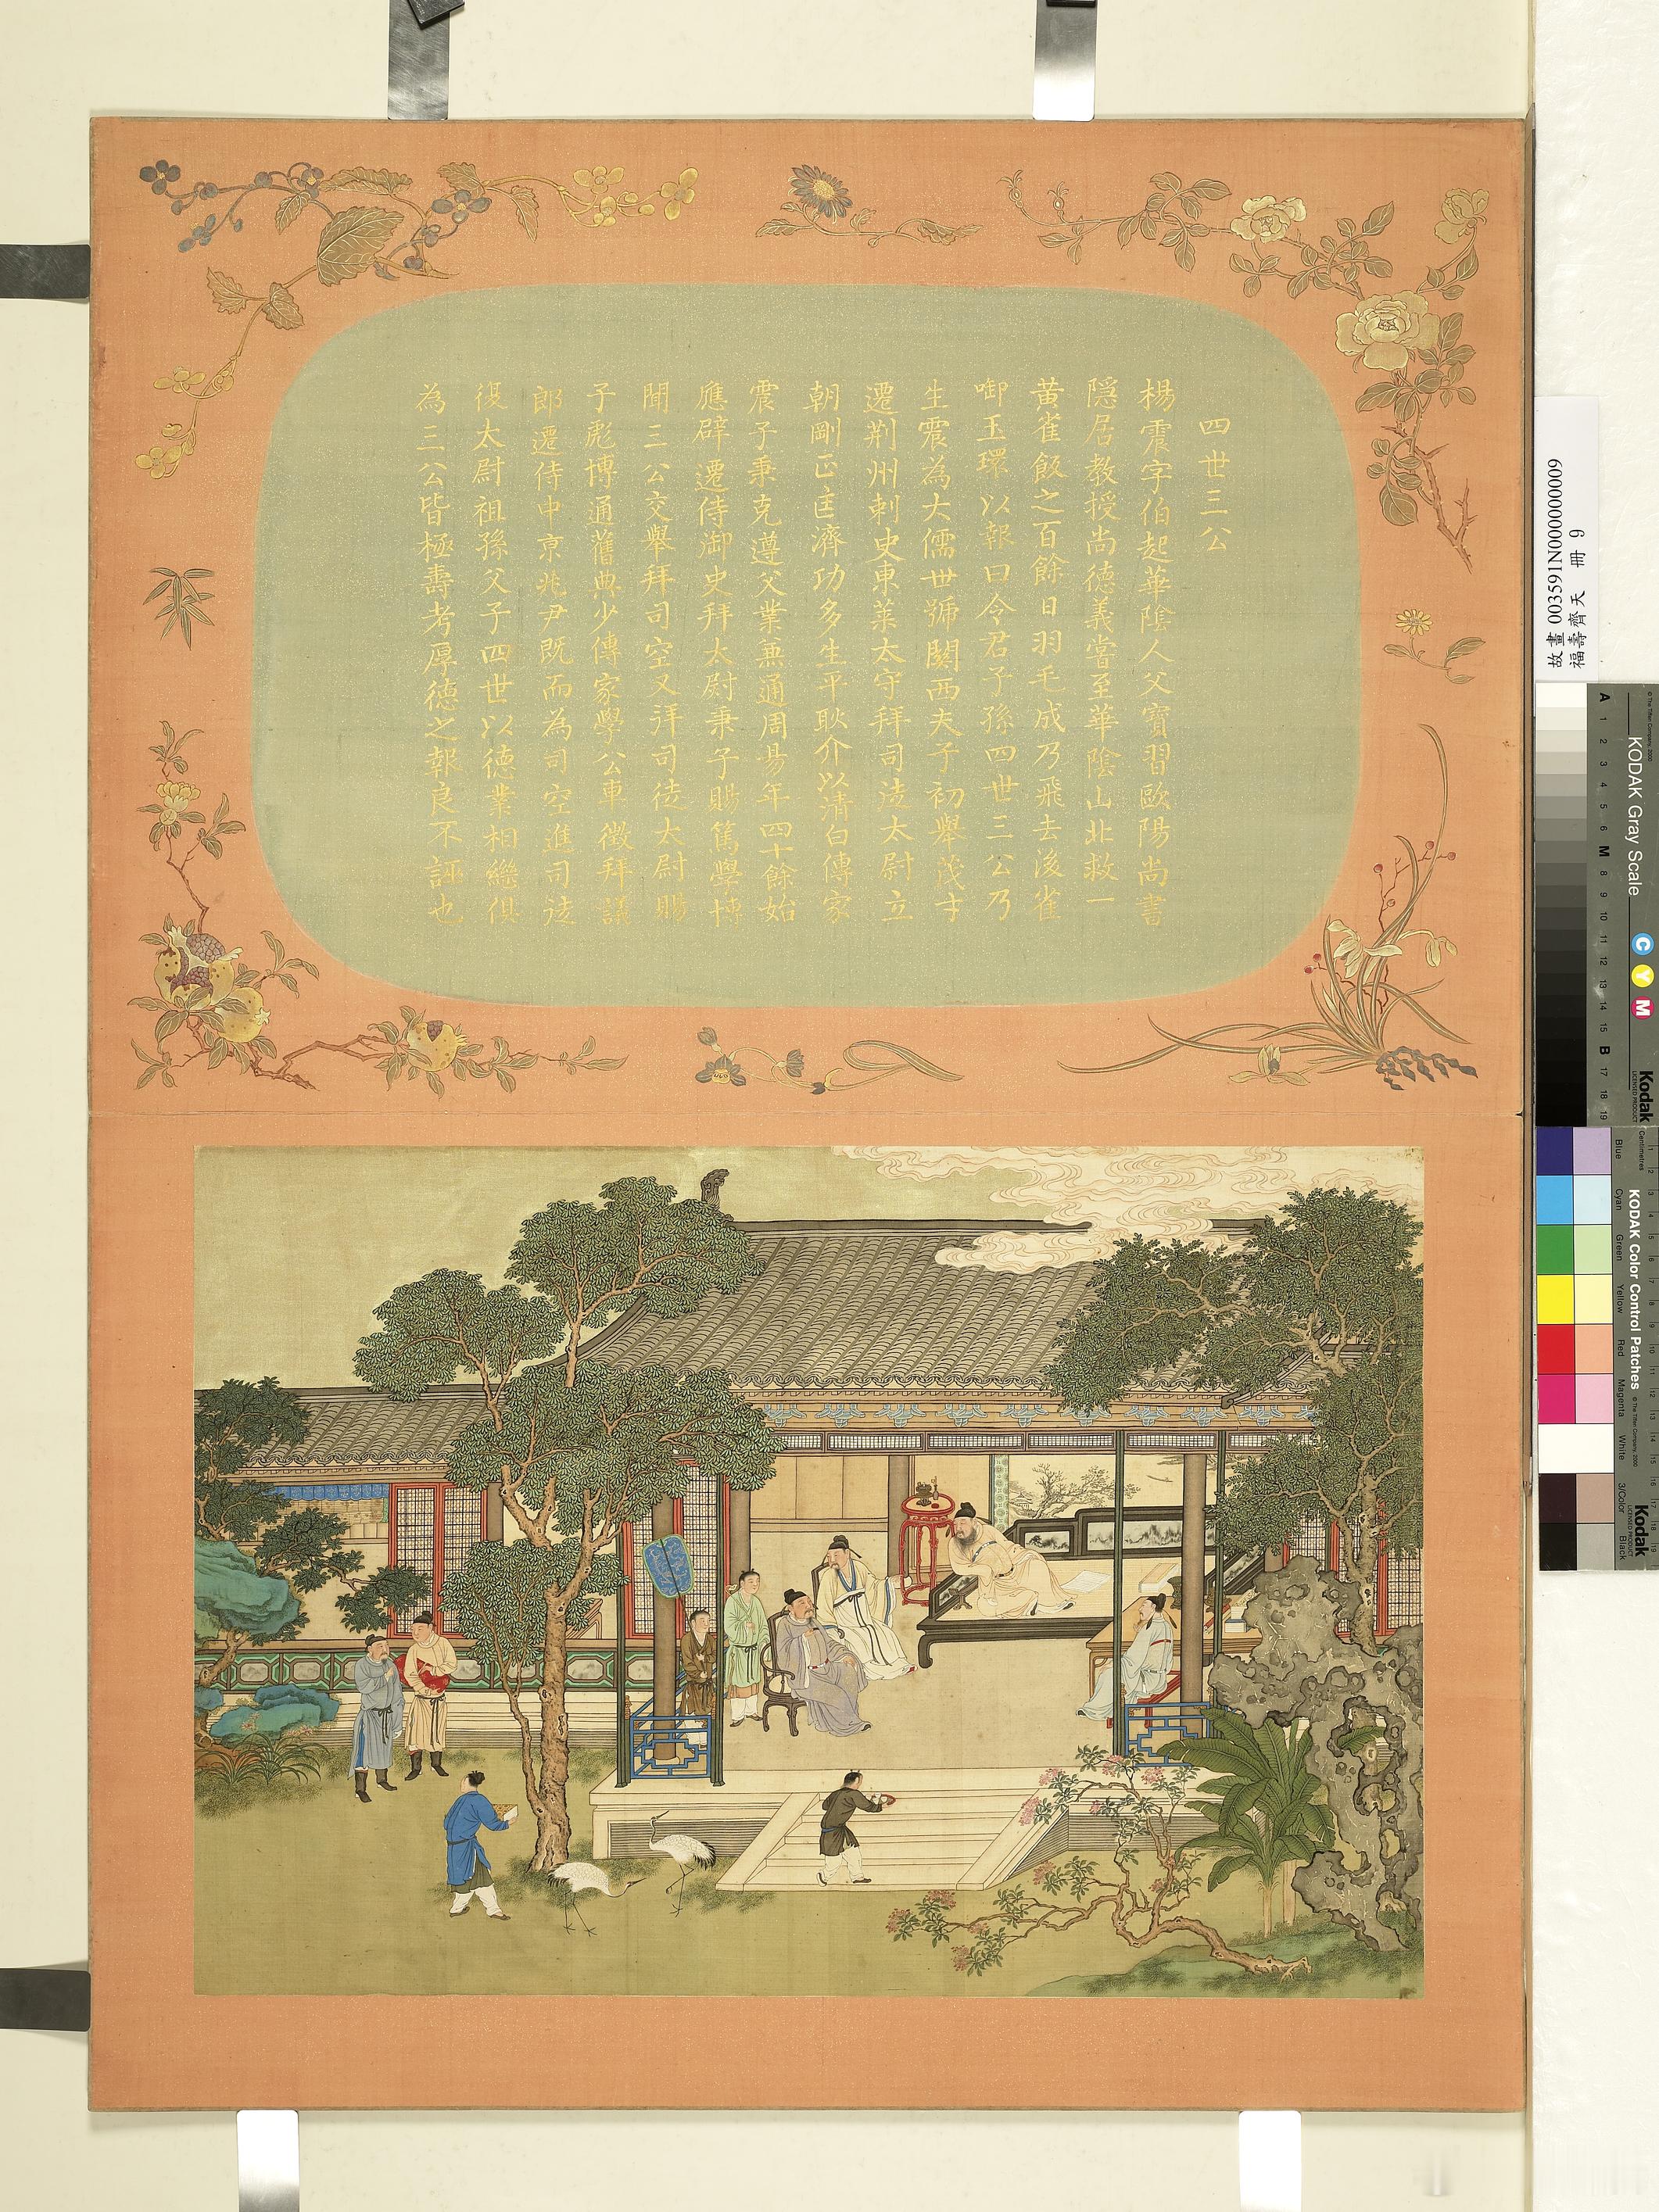 四世三公
楊震字伯起華陰人父寶習歐陽尚書
隱居教授尚德義嘗至華陰山北救一
黃雀飯之百餘日羽毛成乃飛去後雀
啣玉環以報曰令君子孫四世三公乃
生震為大儒世號關西夫子初舉茂才
遷荊州刺史東萊太守拜司徒太尉立
朝剛正匡濟功多生平耿介以清白傳家
震子秉克遵父業兼通周易年四十餘始
應辟遷侍御史拜太尉秉子賜篤學博
聞三公交舉拜司空又拜司徒太尉賜
子彪博通舊典少傳家學公車徵拜議
郎遷侍中京兆尹既而為司空進司徒
復太尉祖孫父子四世以德業相繼俱
為三公皆極壽考厚德之報良不誣也
故畫 003591N000000009
福壽齊天 冊 9
KODAK Gray Scale
© The Tiffen Company, 2000
C Y M
Kodak
LICENSED PRODUCT
A 1 2 3 4 5 6 M 8 9 10 11 12 13 14 15 B 17 18 19
KODAK Color Control Patches
© The Tiffen Company, 2000
Centimetres
Blue Cyan Green Yellow Red Magenta White 3/Color Black
Kodak
LICENSED PRODUCT